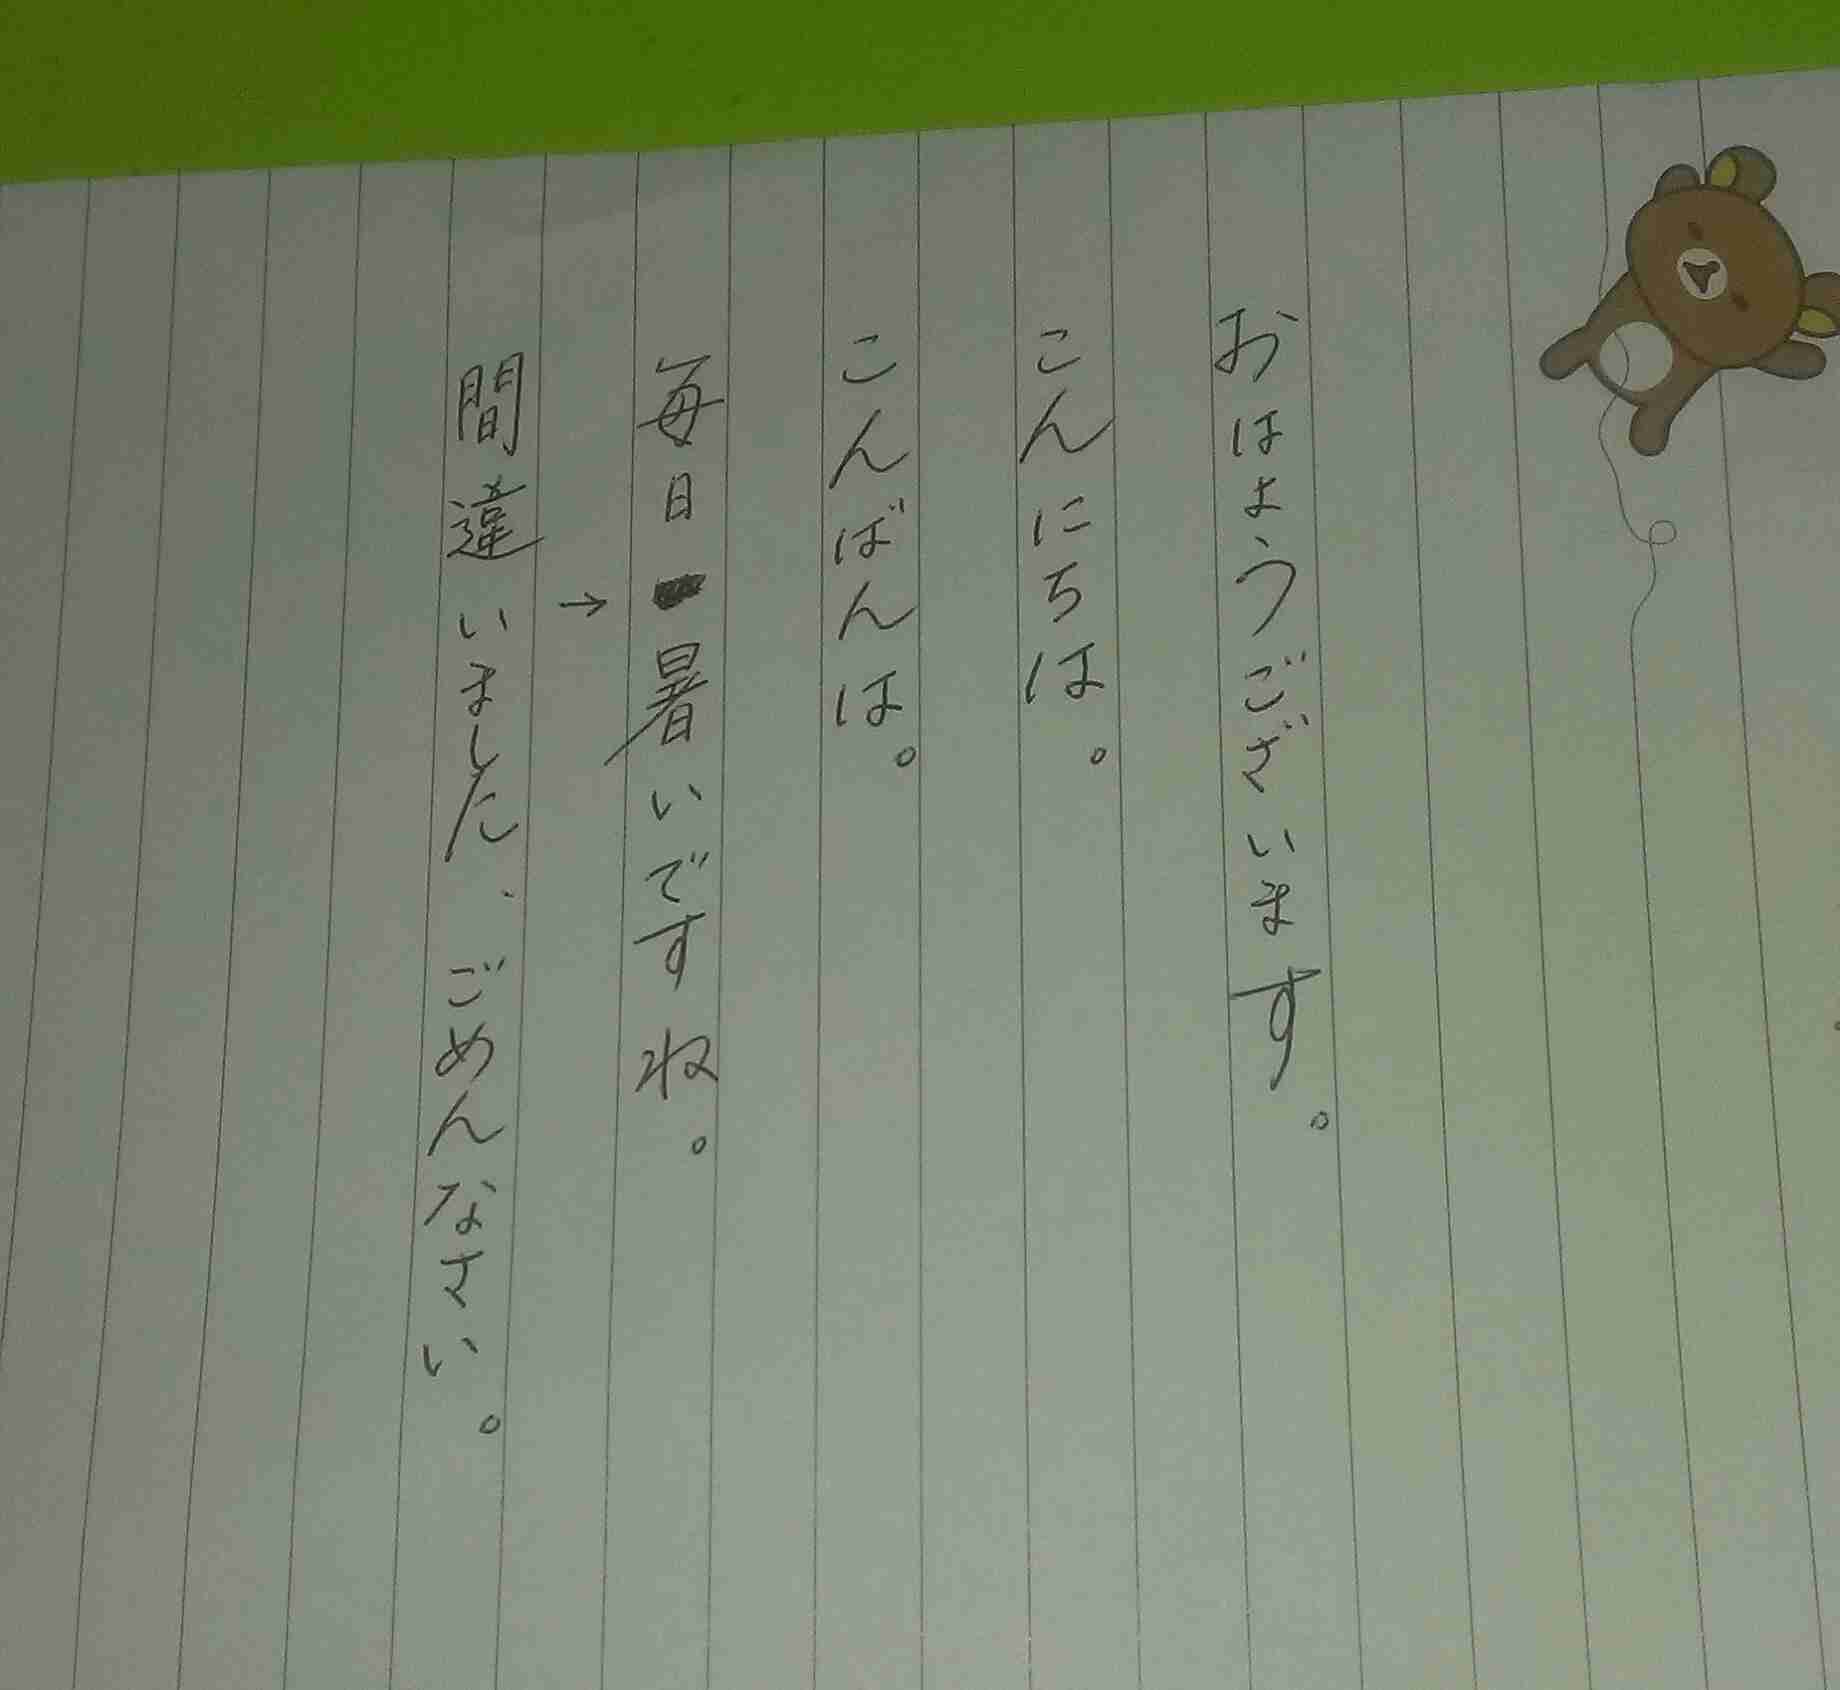 おはようございます。
こんにちは。
こんばんは。
毎日暑いですね。
→
間違いました、ごめんなさい。